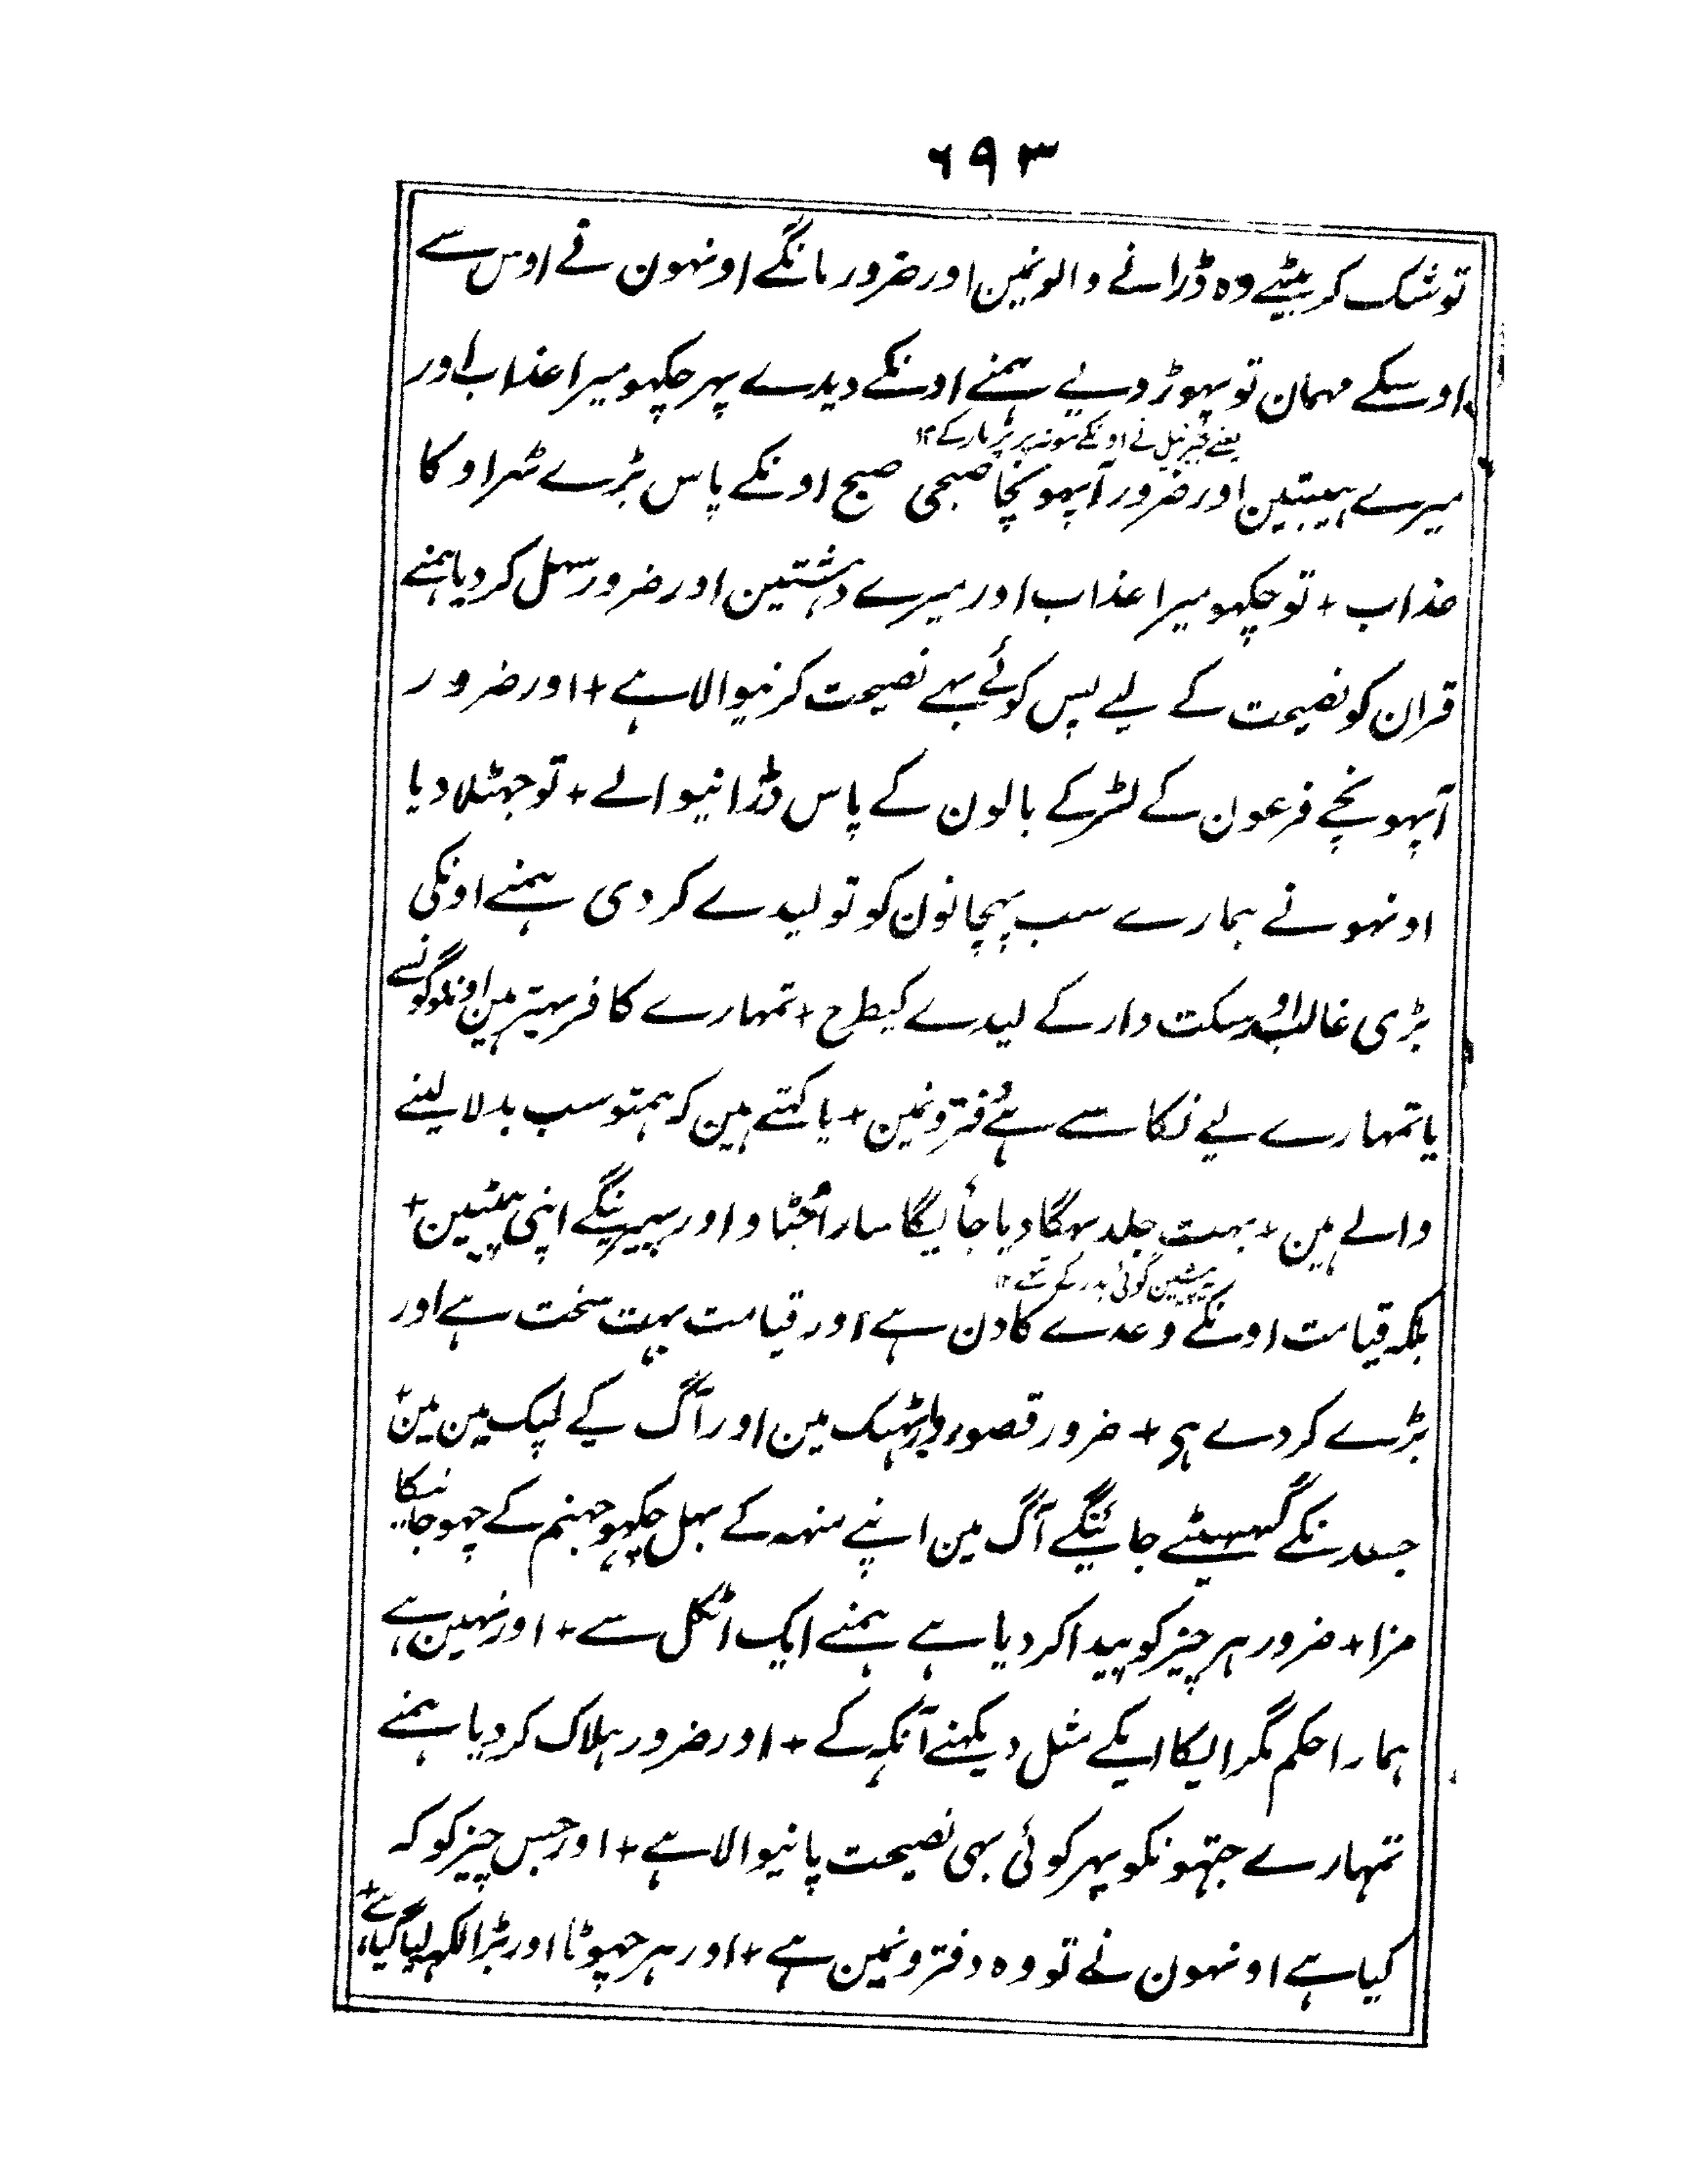 ۶۹۳
تو شک کر بیٹھے وہ ڈرانے والونمین اور ضرور مانگے اونہون نے اوس سے
اوسکے مہمان تو پہوڑ دیے ہمنے اونکے دیدے پہر چکہو میرا عذاب اور
یعنے جبرئیل نے اونکے مونہ پر پر مار کے ۱۲
میرے ہیبتین اور ضرور آپہونچا صبحی صبح اونکے پاس بڑے ٹہراو کا
عذاب + تو چکہو میرا عذاب اور میرے دہشتین اور ضرور سہل کر دیا ہمنے
قران کو نصیحت کے لیے پس کوئے بہے نصیحت کرنیوالا ہے + اور ضرور
آپہونچے فرعون کے لڑکے بالون کے پاس ڈرانیوالے + تو جہٹلا دیا
اونہونے ہمارے سب پہچانون کو تو لیدے کر دی ہمنے اونکی
بڑی غالب اور سکت دار کے لیدے کیطرح + تمہارے کافر بہتر ہین اونلوگونسے
یا تمہارے لیے نکاسے ہے دفترونمین + یا کہتے ہین کہ ہمتو سب بدلا لینے
والے ہین + بہت جلد بہگا دیا جائیگا سارا جُٹاو اور پہیرینگے اپنی پیٹہین +
یہ پیشین گوئی بدر کے ہے ۱۲
بلکہ قیامت اونکے وعدے کا دن ہے اور قیامت بہت سخت ہے اور
بڑے کردے ہی + ضرور قصور وار بہٹک مین اور آگ کے لپک مین ہین +
جسدن کے گہسیٹے جائینگے آگ مین اپنے منہہ کے بہل چکہو جہنم کے چہوجانیکا
مزا + ضرور ہر چیز کو پیدا کر دیا ہے ہمنے ایک اٹکل سے + اور نہین ہے
ہمارا حکم مگر ایکا ایکے مثل دیکہنے آنکہ کے + اور ضرور ہلاک کر دیا ہمنے
تمہارے جتہونکو پہر کوئی بہی نصیحت پانیوالا ہے + اور جس چیز کو کہ
کیا ہے اونہون نے تو وہ دفترونمین ہے + اور ہر چہوٹا اور بڑا لکہہ لیا گیا ہے +